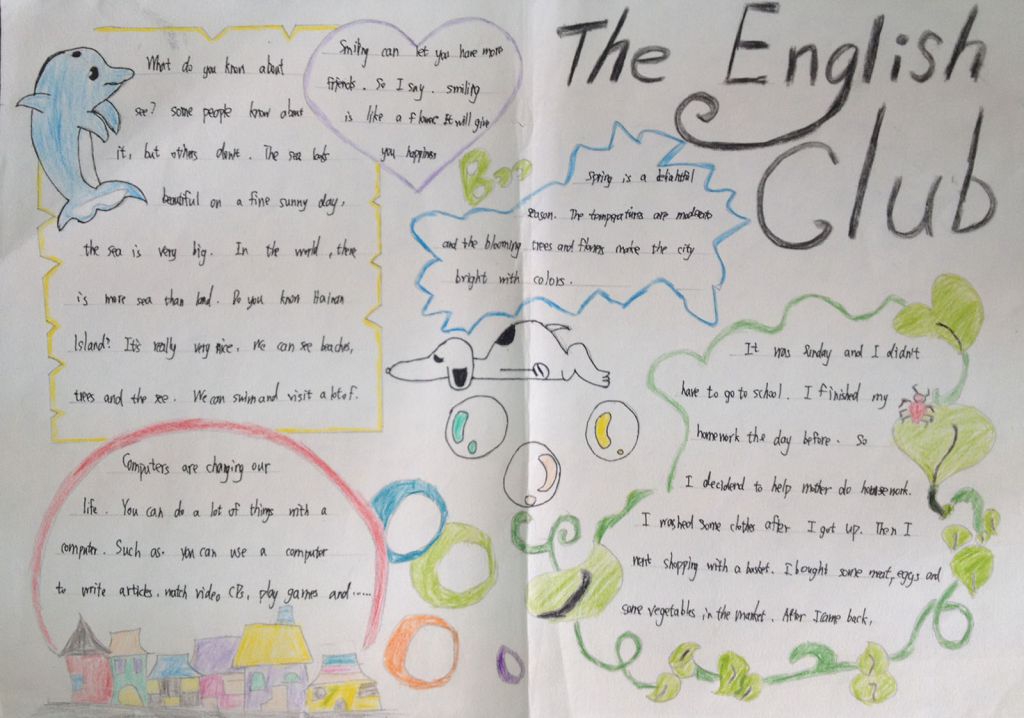 The English
Club
What do you know about
see? some people know about
it, but others don't. The sea looks
beautiful on a fine sunny day,
the sea is very big. In the world, there
is more sea than land. Do you know Hainan
Island? It's really very nice. We can see beaches,
trees and the see. We can swim and visit a lot of.
Smiling can let you have more
friends. So I say. smiling
is like a flower It will give
you happiness
Boo
Spring is a delightful
season. The temperatures are moderate
and the blooming trees and flowers make the city
bright with colors.
Computers are changing our
life. You can do a lot of things with a
computer. Such as. you can use a computer
to write articles, watch video CDs, play games and......
It was Sunday and I didn't
have to go to school. I finished my
homework the day before. So
I decidend to help mother do housework.
I washed some clothes after I got up. Then I
went shopping with a basket. I bought some meat, eggs and
some vegetables in the market. After I came back,